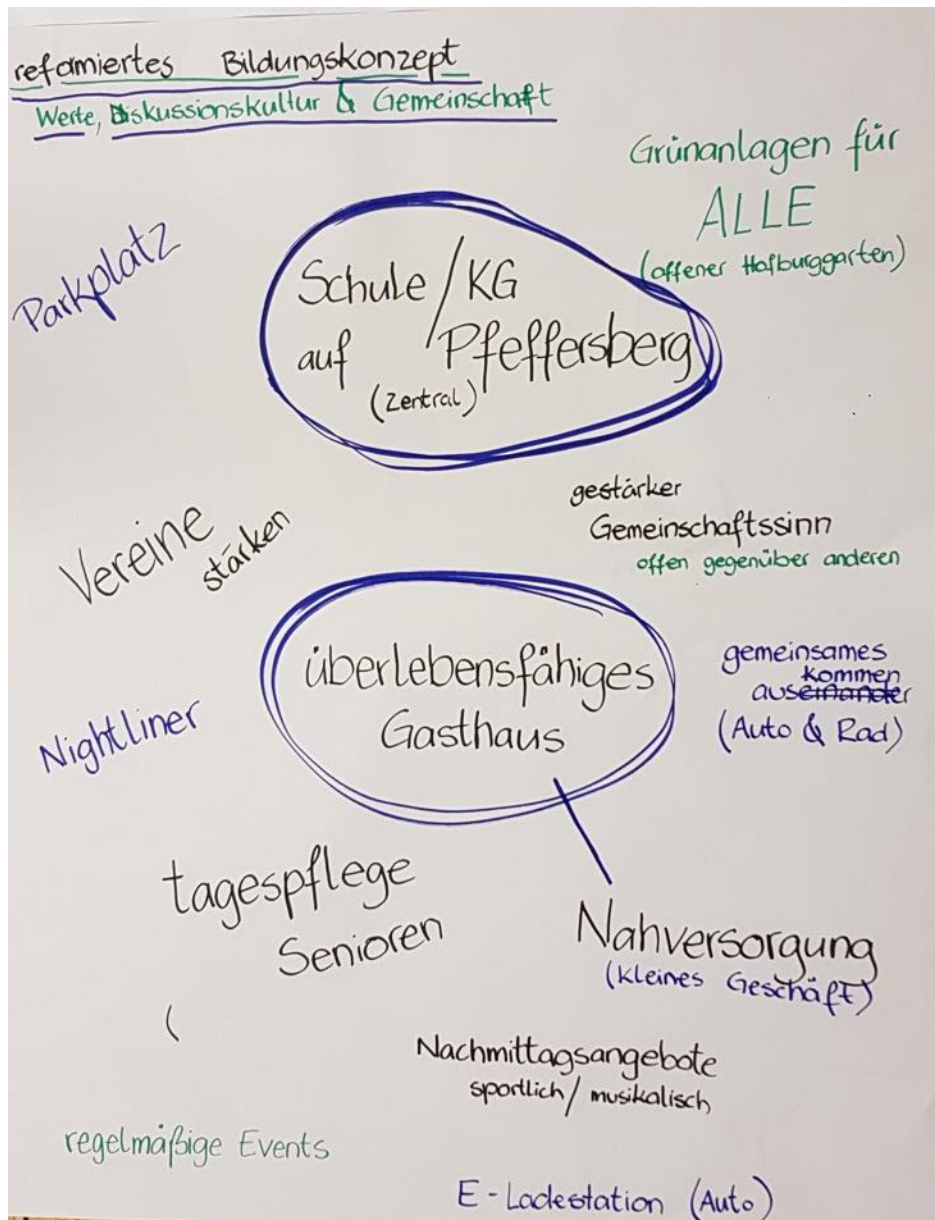 refomiertes Bildungskonzept
Werte, Diskussionskultur & Gemeinschaft
Grünanlagen für
ALLE
(offener Hofburggarten)
Parkplatz
Schule / KG
auf Pfeffersberg
(Zentral)
Vereine
stärken
gestärker
Gemeinschaftssinn
offen gegenüber anderen
überlebensfähiges
Gasthaus
gemeinsames
kommen
auseinander
(Auto & Rad)
Nightliner
tagespflege
Senioren
Nahversorgung
(kleines Geschäft)
(
Nachmittagsangebote
sportlich / musikalisch
regelmäßige Events
E-Ladestation (Auto)